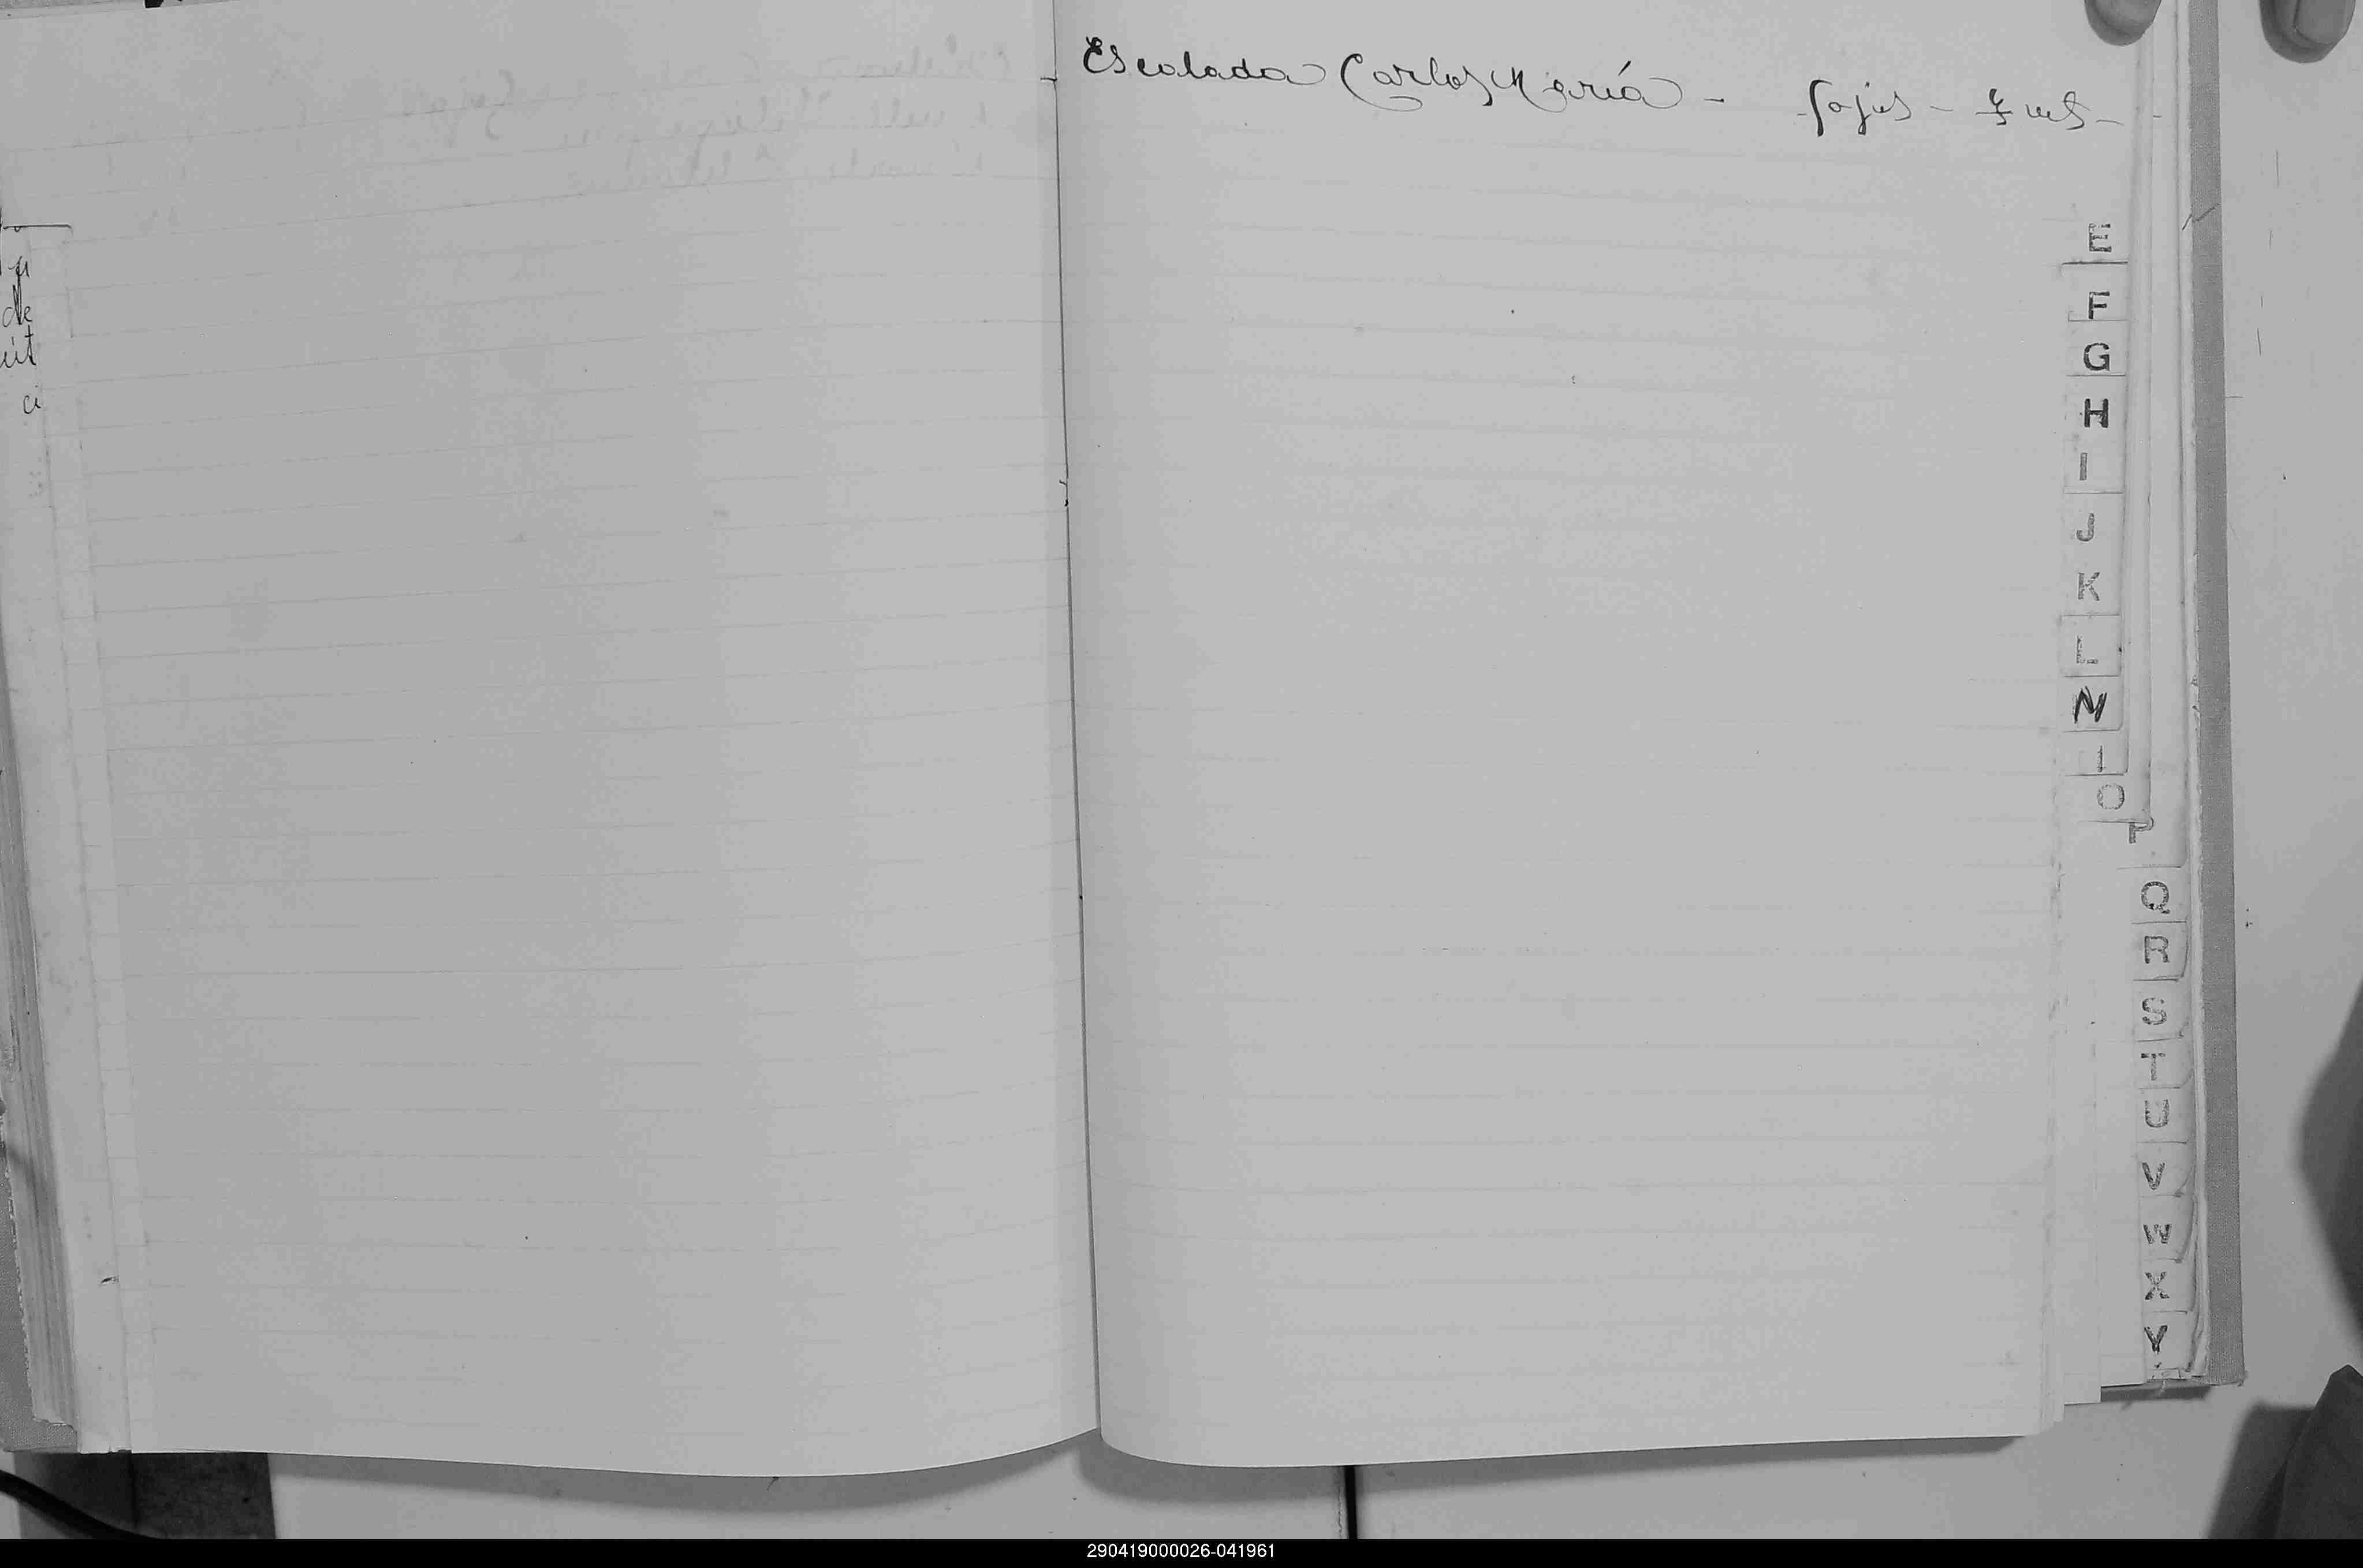 de
Escalada Carlos María - fojas -
E
F
G
H
I
J
K
L
N
O
P
Q
R
S
T
U
V
W
X
Y
290419000026-041961